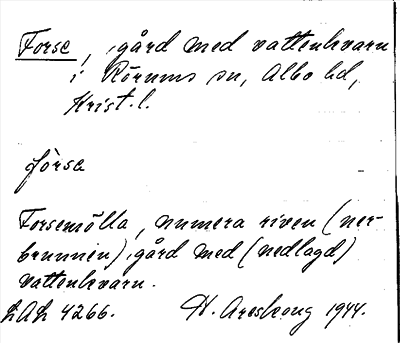 Forse, gård med vattenkvarn
i Rörums sn, Albo hd,
Krist. l.
fòrsa
Forsemölla, numera riven (ner-
brunnen), gård med (nedlagd)
vattenkvarn.
LAL 4266. H. Areskoug 1944.